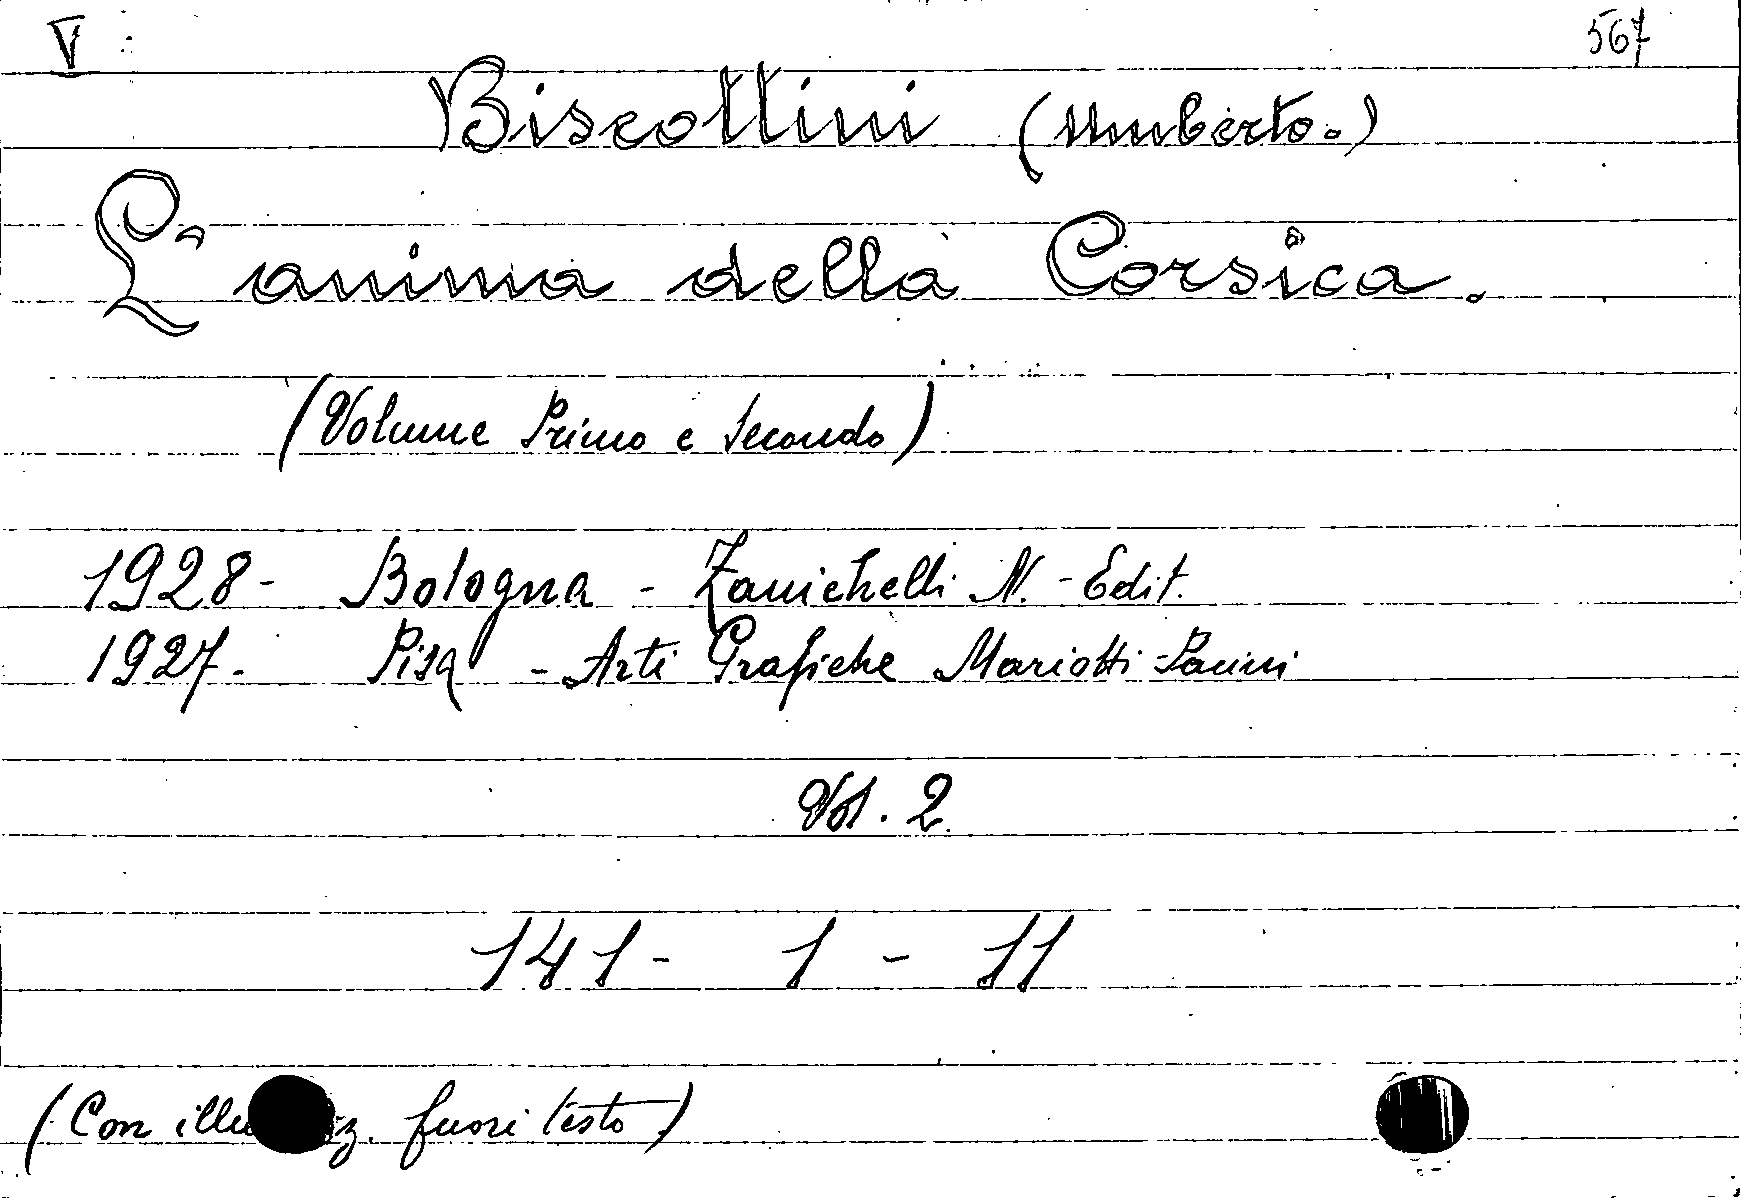 V 567
Biscottini (Umberto.)
L'anima della Corsica.
(Volume Primo e Secondo)
1928- Bologna - Zanichelli N. - Edit.
1927- Pisa - Arti Grafiche Mariotti-Pacini
Vol. 2
141- 1 - 11
(Con illu z. fuori testo)